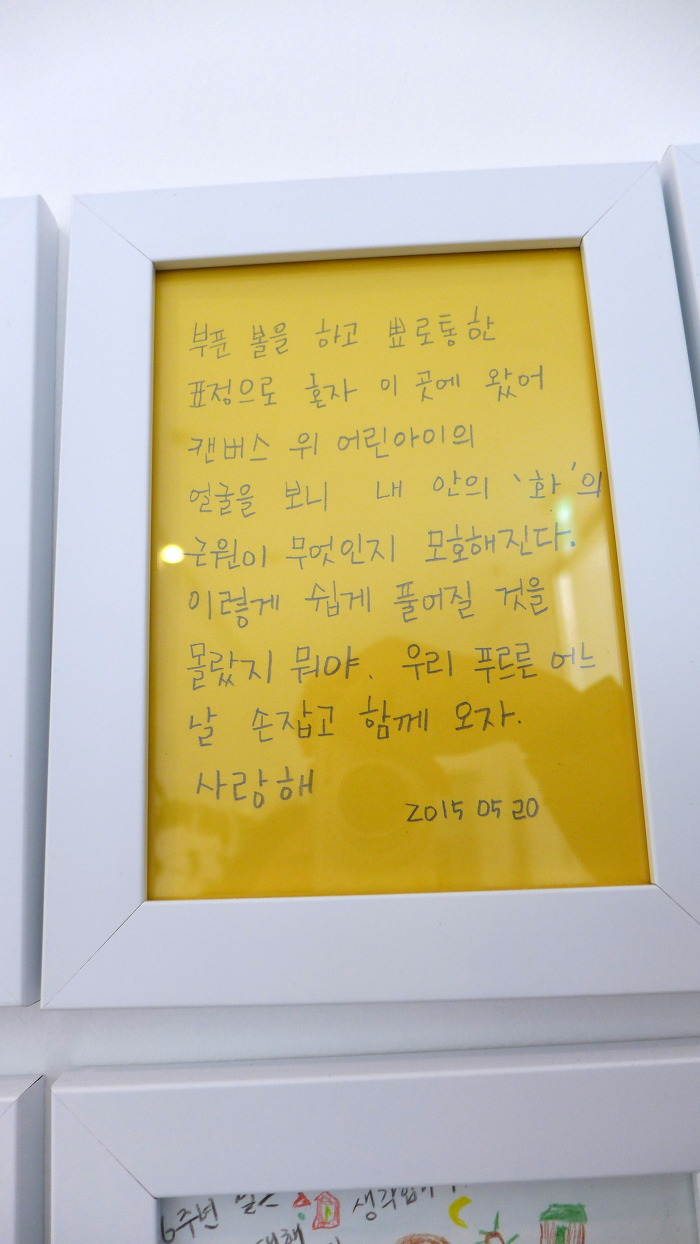 부푼 볼을 하고 뾰로통한
표정으로 혼자 이 곳에 왔어
캔버스 위 어린아이의
얼굴을 보니 내 안의 '화'의
근원이 무엇인지 모호해진다.
이렇게 쉽게 풀어질 것을
몰랐지 뭐야. 우리 푸르른 어느
날 손잡고 함께 오자.
사랑해
2015 05 20
6주년